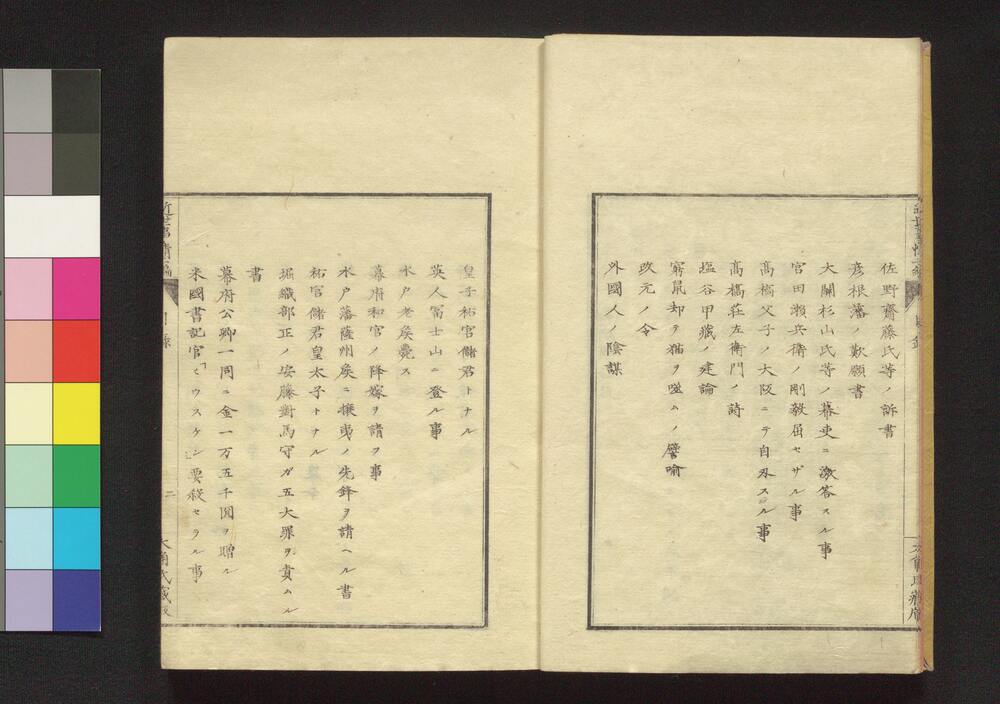 佐野齋藤氏等ノ訴書
彦根藩ノ歎願書
大關杉山氏等ノ幕吏ニ激答スル事
宮田瀬兵衛ノ剛毅屈セザル事
髙橋父子ノ大阪ニテ自刃スル事
髙橋莊左衛門ノ詩
塩谷甲藏ノ建論
窮鼠却テ猫ヲ噬ムノ譬喻
改元ノ令
外國人ノ陰謀
皇子祐宮儲君トナル
英人冨士山ニ登ル事
水户老矦薨ス
幕府和宮ノ降嫁ヲ請フ事
水户藩薩州矦ニ攘夷ノ先鋒ヲ請ヘル書
祐宮儲君皇太子トナル
堀織部正ノ安藤對馬守ガ五大罪ヲ責ムル
書
幕府公卿一同ニ金一万五千圓ヲ贈ル
米國書記官「ヒウスケン」要殺セラル事
目録
二